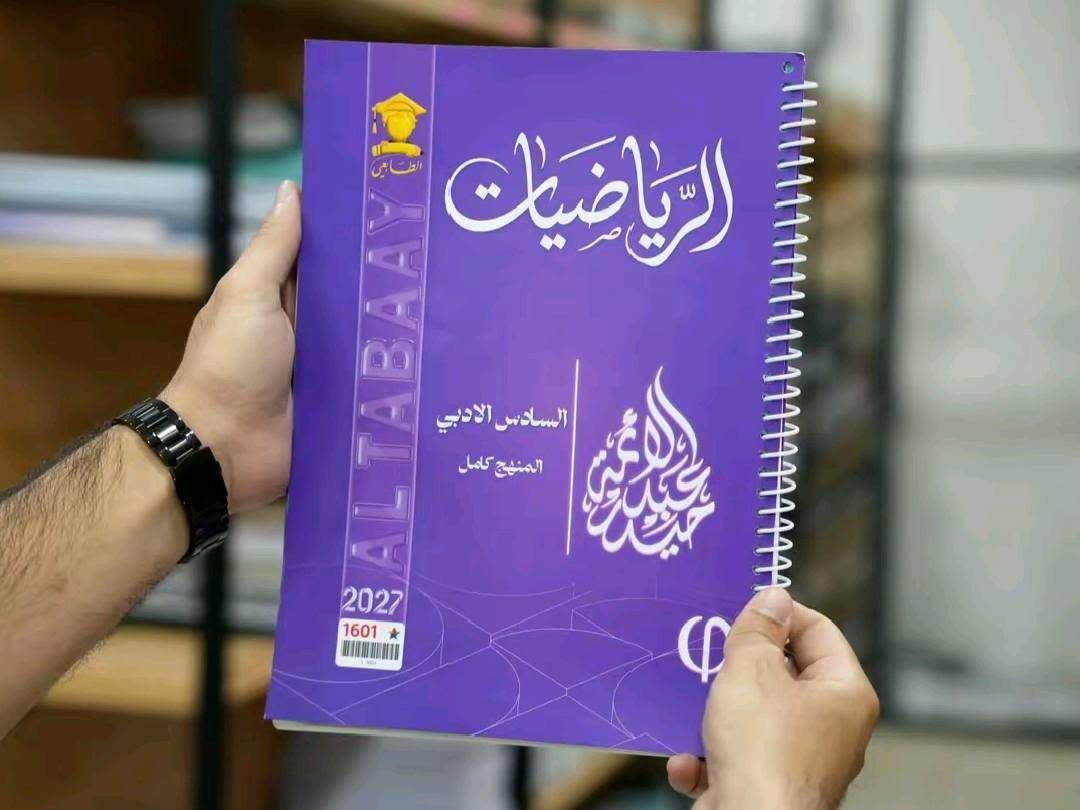 الطابعي
الرياضيات
ALTABAAY
السادس الادبي
المنهج كامل
حيدر عبد الائمة
2027
1601